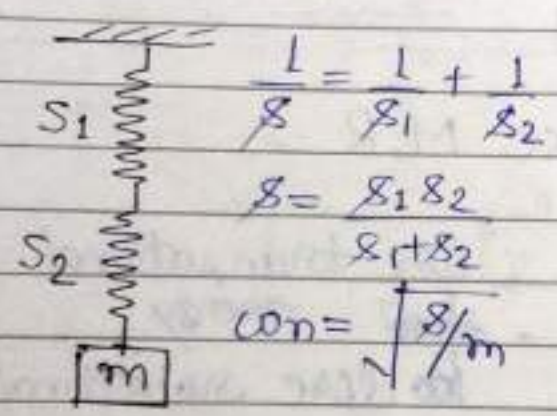 S1
S2
m
1/s = 1/s1 + 1/s2
s = s1 s2 / s1+s2
ωn = √s/m